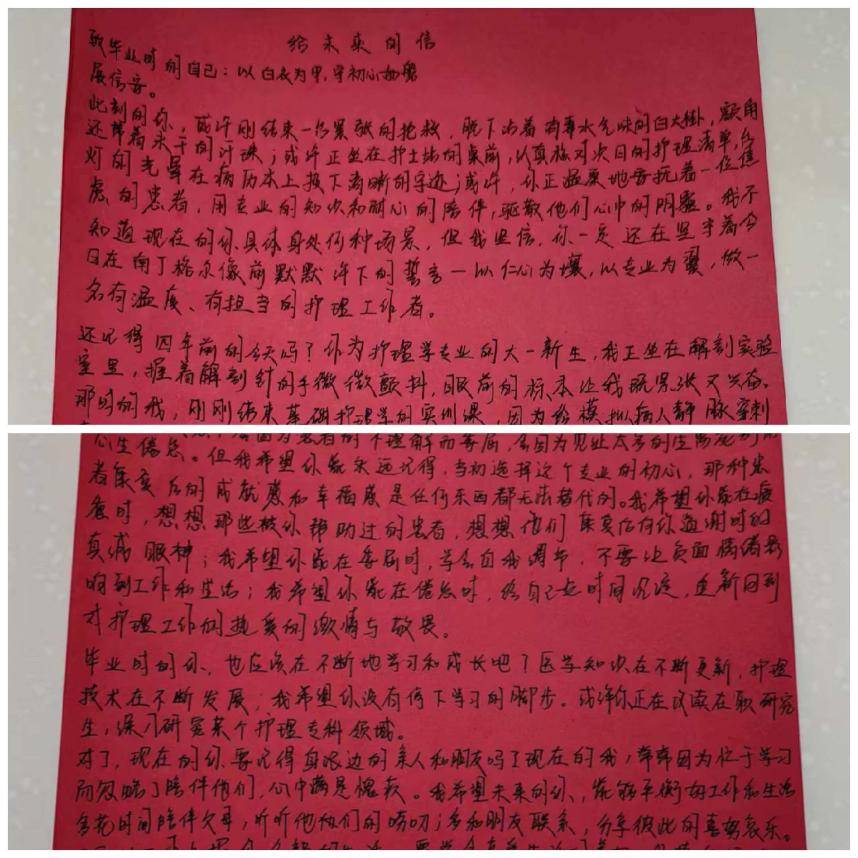 给未来的信
致毕业时的自己：以白衣为甲，守初心如磐
展信安。
此刻的你，或许刚结束一场紧张的抢救，脱下沾着消毒水气味的白大褂，额角
还带着未干的汗珠；或许正坐在护士站的桌前，认真核对次日的护理清单，台
灯的光晕在病历本上投下清晰的字迹；或许，你正温柔地安抚着一位焦
虑的患者，用专业的知识和耐心的陪伴，驱散他们心中的阴霾。我不
知道现在的你具体身处何种场景，但我坚信，你一定还在坚守着今
日在南丁格尔像前默默许下的誓言—以仁心为壤，以专业为翼，做一
名有温度、有担当的护理工作者。
还记得四年前的今天吗？作为护理学专业的大一新生，我正坐在解剖实验
室里，握着解剖针的手微微颤抖，眼前的标本让我既紧张又兴奋。
那时的我，刚刚结束基础护理学的实训课，因为给模拟病人静脉穿刺
心生倦怠。但我希望你能永远记得，当初选择这个专业的初心，那种患
者康复后的成就感和幸福感是任何东西都无法替代的。我希望你能在疲
惫时，想想那些被你帮助过的患者，想想他们康复后向你道谢时的
真诚眼神；我希望你能在委屈时，学会自我调节，不要让负面情绪影
响到工作和生活；我希望你能在倦怠时，给自己一点时间沉淀，重新回到
对护理工作的热爱的激情与敬畏。
毕业时的你，也应该在不断地学习和成长吧？医学知识在不断更新，护理
技术在不断发展，我希望你没有停下学习的脚步。或许你正在攻读在职研究
生，深入研究某个护理专科领域。
对了，现在的你要记得身边的亲人和朋友吗？现在的我，常常因为忙于学习
而忽略了陪伴他们，心中满是愧疚。我希望未来的你，能够平衡好工作和生活
多花时间陪伴父母，听听他们的唠叨；多和朋友联系，分享彼此的喜怒哀乐。